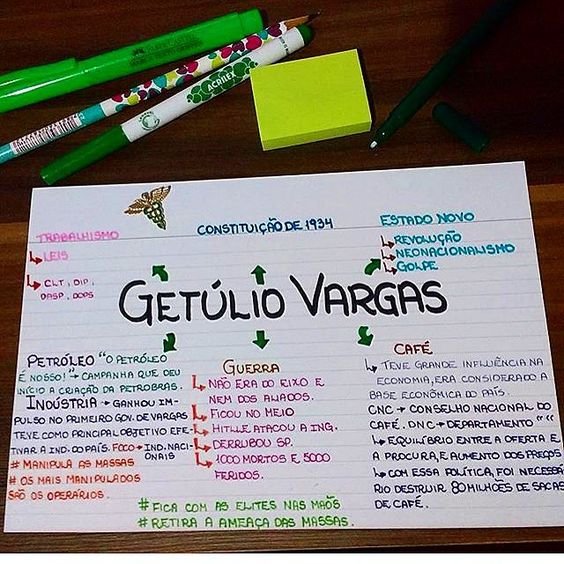 ACRILEX
TRABALHISMO
LEIS
CLT, DIP,
DASP, DOPS
CONSTITUIÇÃO DE 1934
ESTADO NOVO
REVOLUÇÃO
NEONACIONALISMO
GOLPE
GETÚLIO VARGAS
PETRÓLEO "O PETRÓLEO
É NOSSO!" → CAMPANHA QUE DEU
INÍCIO A CRIAÇÃO DA PETROBRAS.
INDÚSTRIA → GANHOU IM-
PULSO NO PRIMEIRO GOV. DE VARGAS
TEVE COMO PRINCIPAL OBJETIVO EFE-
TIVAR A IND. DO PAÍS. FOCO → IND. NACI-
ONAIS
# MANIPULA AS MASSAS
# OS MAIS MANIPULADOS
SÃO OS OPERÁRIOS.
GUERRA
NÃO ERA DO EIXO E
NEM DOS ALIADOS.
FICOU NO MEIO
HITLLE ATACOU A ING.
DERRUBOU SP.
1000 MORTOS E 5000
FERIDOS.
# FICA COM AS ELITES NAS MÃOS
# RETIRA A AMEAÇA DAS MASSAS.
CAFÉ
TEVE GRANDE INFLUÊNCIA NA
ECONOMIA, ERA CONSIDERADO A
BASE ECONÔMICA DO PAÍS.
CNC → CONSELHO NACIONAL DO
CAFÉ. DNC → DEPARTAMENTO " "
EQUILÍBRIO ENTRE A OFERTA E
A PROCURA, E AUMENTO DOS PREÇOS
COM ESSA POLÍTICA, FOI NECESSÁ
RIO DESTRUIR 80 MILHÕES DE SACAS
DE CAFÉ.